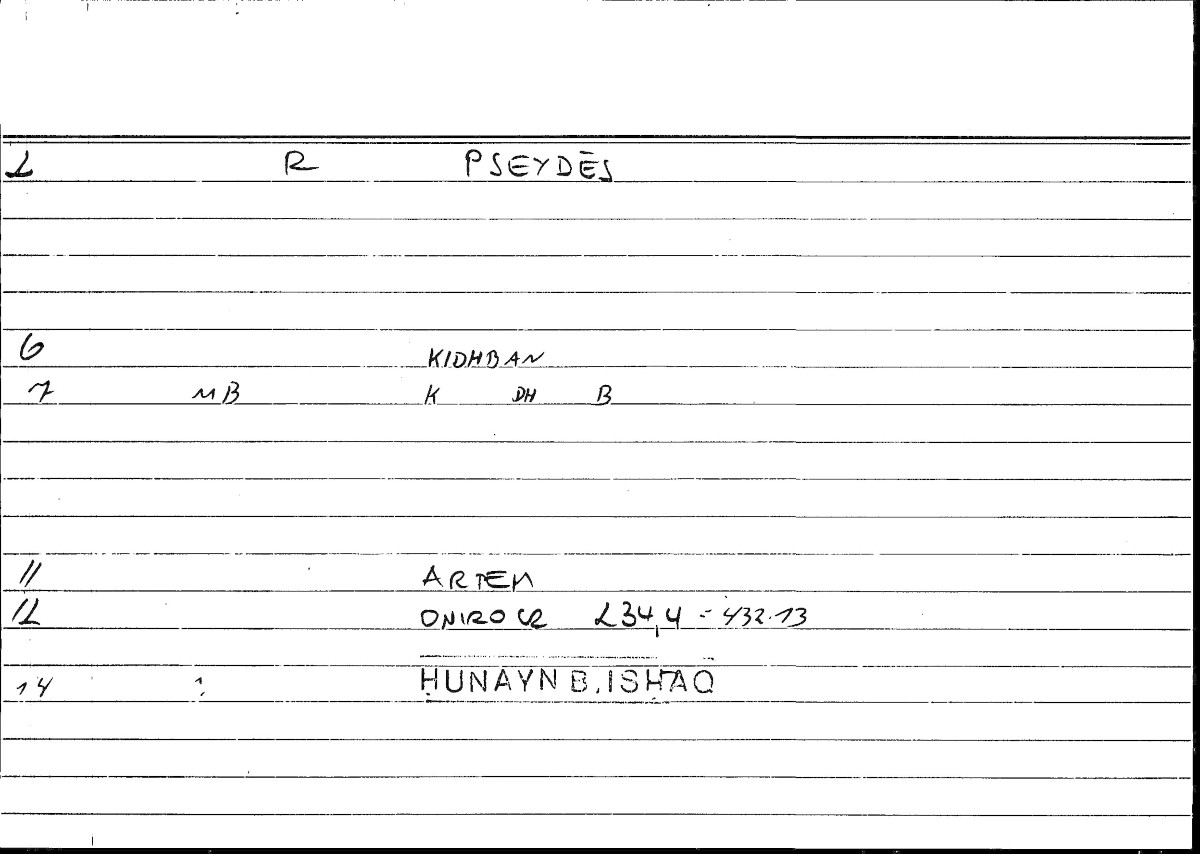 1 R PSEYDĒS
6 KIDHBAN
7 MB K DH B
11 ARTEM
12 ONIROCR 234,4 = 432.13
14 : ḤUNAYN B. ISḤAQ